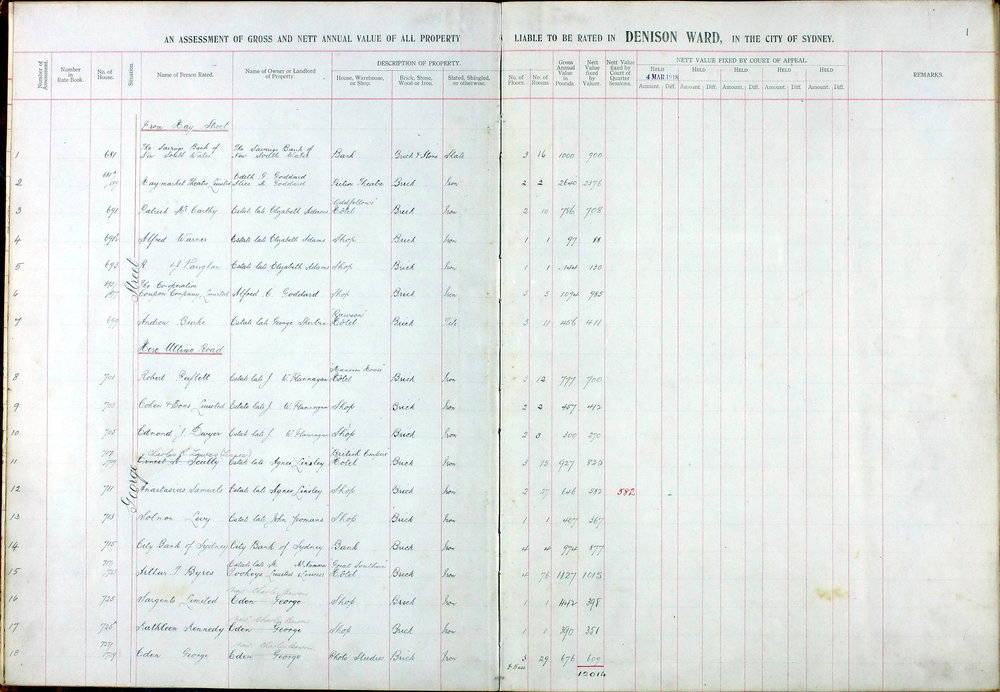 AN ASSESSMENT OF GROSS AND NETT ANNUAL VALUE OF ALL PROPERTY LIABLE TO BE RATED IN DENISON WARD, IN THE CITY OF SYDNEY.
1
Number of Assessment. Number in Rate Book. No. of House. Situation. Name of Person Rated. Name of Owner or Landlord of Property. DESCRIPTION OF PROPERTY. House, Warehouse, or Shop. Brick, Stone, Wood or Iron. Slated, Shingled, or otherwise. No. of Floors. No. of Rooms Gross Annual Value in Pounds. Nett Value fixed by Valuer. Nett Value fixed by Court of Quarter Sessions. NETT VALUE FIXED BY COURT OF APPEAL. REMARKS.
HELD HELD HELD HELD HELD
4 MAR 1918
Amount. Diff. Amount. Diff. Amount. Diff. Amount. Diff. Amount. Diff.
George Street
From Hay Street
1 681 The Savings Bank of New South Wales The Savings Bank of New South Wales Bank Brick & Stone Slate 3 16 1000 900
2 Haymarket Theatre Limited Edith G Goddard Alice M Goddard Picture Theatre Brick Iron 2 2 2640 2376
3 691 Patrick McCarthy Estate late Elizabeth Adams Oddfellows Hotel Brick Iron 2 10 786 708
4 691½ Alfred Warner Estate late Elizabeth Adams Shop Brick Iron 1 1 97 88
5 693 Vaughan Estate late Elizabeth Adams Shop Brick Iron 1 1 144 130
6 The Co-operative Coupon Company, Limited Alfred C. Goddard Shop Brick Iron 3 5 1094 985
7 699 Andrew Burke Estate late George Rawson Hotel Brick Tile 3 11 456 411
Here Ultimo Road
8 701 Robert Estate late J W. Flannagan Mansion House Hotel Brick Iron 3 12 777 700
9 703 Cohen & Sons Limited Estate late J W. Flannagan Shop Brick Iron 2 2 457 412
10 705 Edmond J. Dwyer Estate late J W. Flannagan Shop Brick Iron 2 3 300 270
11 Charles Ernest Scully Estate late Agnes Linsley Hotel Brick Iron 3 15 927
12 711 Anastasius Samuels Estate late Agnes Linsley Shop Brick Iron 2 27 646 582 582
13 713 Solmon Levy Estate late John Yeomans Shop Brick Iron 1 1 407 367
14 715 City Bank of Sydney City Bank of Sydney Bank Brick Iron 4 4 974 877
15 Arthur T. Byres Estate M. McNamara Tooheys Limited Great Southern Hotel Brick Iron 4 76 1127 1015
16 725 Sargents Limited Eden George Shop Brick Iron 1 1 442 398
17 Kathleen Kennedy Eden George Shop Brick Iron 1 1 390 351
18 Eden George Eden George Photo Studio Brick Iron 3 29 676 609
12014